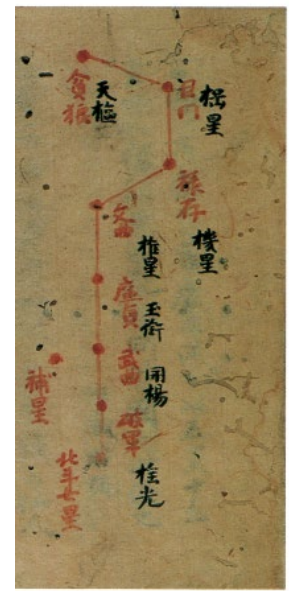 貪狼
天樞
巨門
星
禄存
機星
文曲
権星
廉貞
玉衡
武曲
開楊
破軍
光
補星
北斗七星